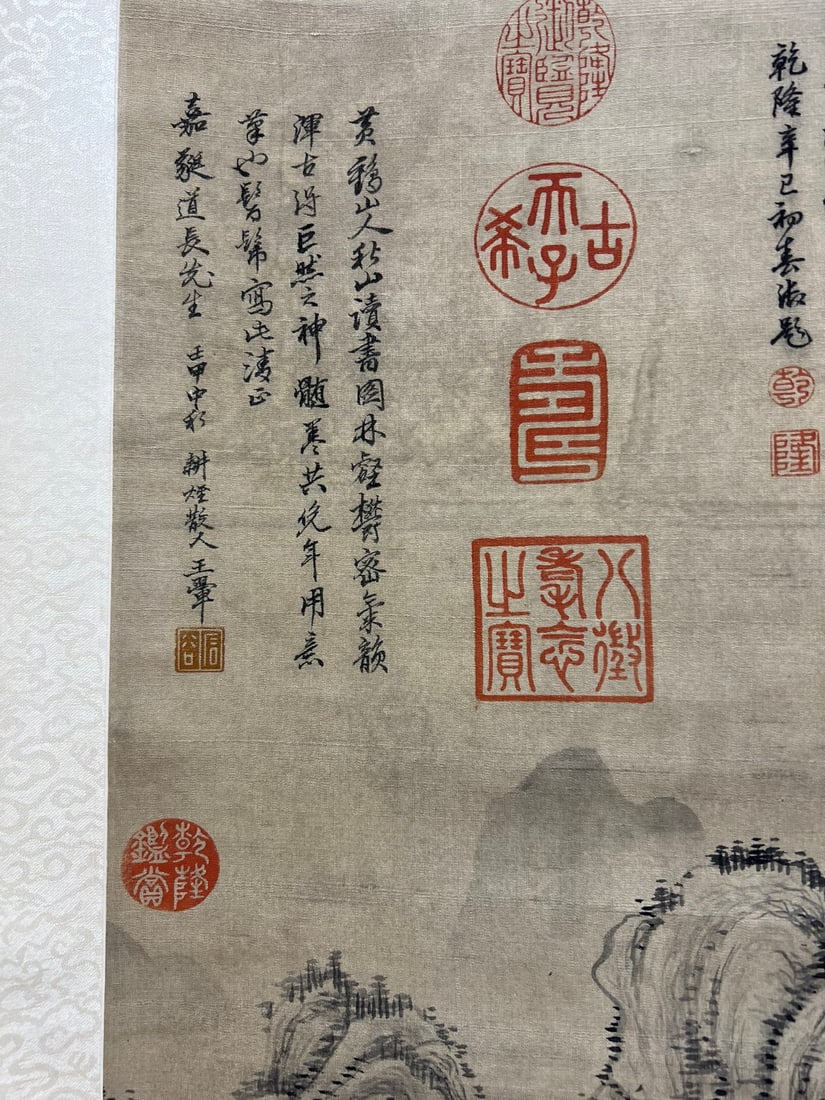 乾隆辛巳初春御題
乾
隆
乾隆
御覽
之寶
古
希
天子
壽
八徵
耄念
之寶
黃鶴山人秋山讀書圖林壑欝密氣韻
渾古得巨然之神髓農共晚年用意
筆也髣髴寫此清正
嘉 道長先生 壬申中秋 耕煙散人王翬
石谷
乾隆
鑑賞